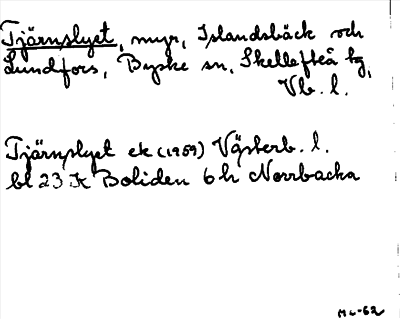 Tjärnslyet, myr, Islandsbäck och
Lundfors, Byske sn, Skellefteå tg,
Vb. l.
Tjärnslyet ek (1959) Västerb. l.
bl 23 K Boliden 6 h Norrbacka
ML-62